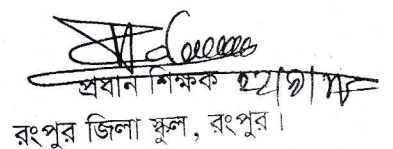 প্রধান শিক্ষক
রংপুর জিলা স্কুল, রংপুর।